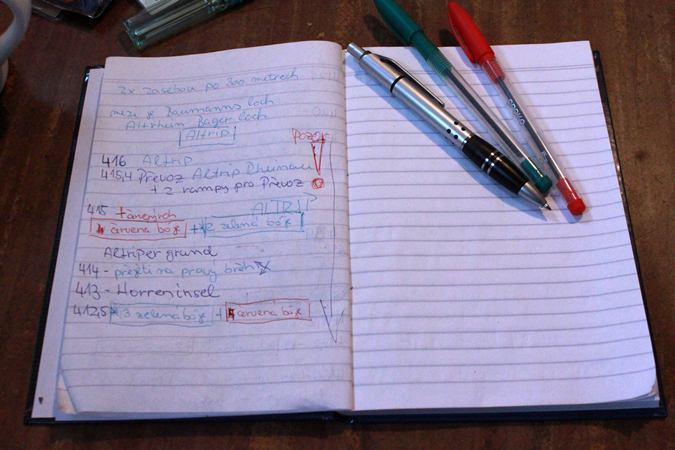 2x zasebou po 300 metrech
mezi je Baumanns loch
Altrhein Bager loch
Altrip
416 Altrip
pozor
415,4 Převoz Altrip
+ 2 rampy pro Převoz
ALTRIP
415
4 červená bóje + 2 zelená bóje
Altriper grund
414 - přejeti na pravý břeh
413 - Horreninsel
412,5 3 zelená bóje + 4 červená bóje